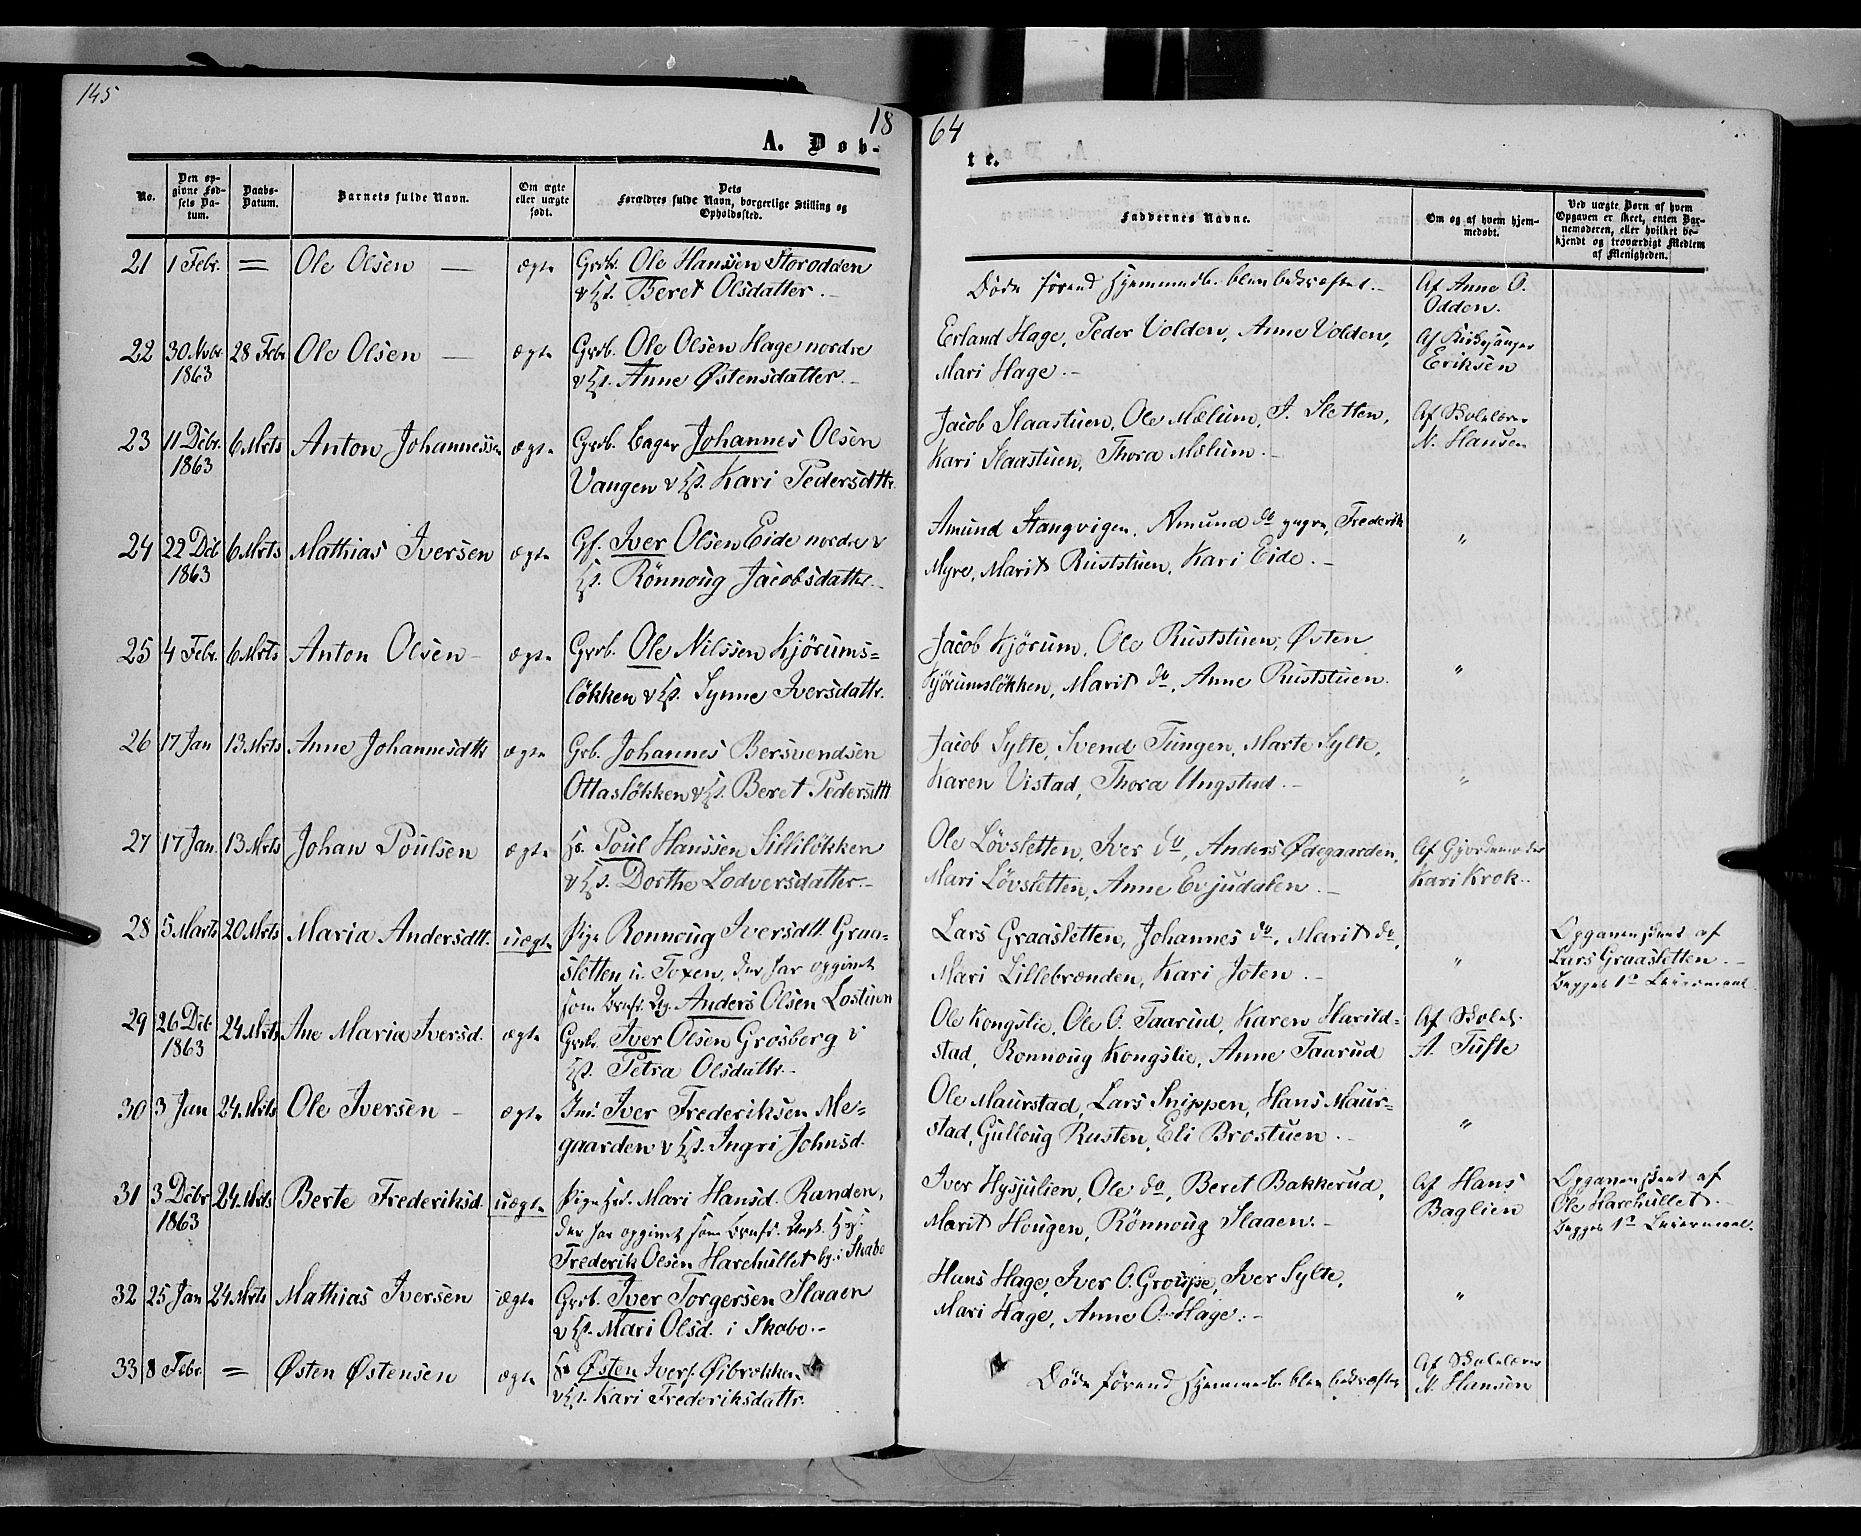 145
18
64
A. Døb-
te.
No.
Den op-
givne Fød-
sels Da-
tum.
Daabs-
Datum.
Barnets fulde Navn.
Om ægte
eller uægte
født.
Dets
Forældres fulde Navn, borgerlige Stilling og
Opholdssted.
Faddernes Navne.
Om og af hvem hjem-
medøbt.
Ved uægte Børn af hvem
Opgaven er skeet, enten Bar-
nemoderen, eller hvilket be-
kjendt og troværdigt Medlem
af Menigheden.
21 1 Febr. = Ole Olsen — ægte Grdbr. Ole Hanssen Storodden
v Hst. Beret Olsdatter.-
Døde førend Hjemmedb. blev bekræftet.-
Af Anne O.
Odden.
22 30 Nvbr. 1863 28 Febr Ole Olsen — ægte Grdb. Ole Olsen Hage nordre
v Hst. Anne Østensdatter.-
Erland Hage, Peder Volden, Anne Volden,
Mari Hage.-
Af Kirkesanger
Eriksen
23 11 Dcbr. 1863 6 Mrts Anton Johannessen ægte Grdb. Bager Johannes Olsen
Vangen v Hst. Kari Pedersdttr.
Jacob Slaastuen, Ole Mælum, J. Sletten,
Kari Slaastuen, Thora Mælum.-
Af Skolelærer
N. Hansen
24 22 Dcb 1863 6 Mrts Mathias Iversen ægte Gf. Iver Olsen Eide nordre v
Hst. Rönnoug Jacobsdatter.-
Amund Stangvigen, Amund do yngre, Frederik
Myre, Marit Ruststuen, Kari Eide.-
"
25 4 Febr. 6 Mrts Anton Olsen - ægte Grdb. Ole Nilssen Kjörums=
lökken v Hst. Synne Iversdattr.
Jacob Kjörum, Ole Ruststuen, Østen
Kjörumslökken, Marit do, Anne Ruststuen.
"
26 17 Jan 13 Mrts Anne Johannesdttr ægte Grb. Johannes Bersvendsen
Ottaslökken v Hst. Beret Pedersdttr
Jacob Sylte, Svend Tungen, Marte Sylte,
Karen Vistad, Thora Ungstad.-
"
27 17 Jan. 13 Mrts Johan Poulsen ægte Poul Hanssen Silliløkken
v Hst. Dorthe Lodversdatter.-
Ole Lövsletten, Iver do, Anders Ødegaarden,
Mari Lövsletten, Anne Evjudalen.-
Af Gjordemoder
Kari Krok.-
28 5 Marts 20 Mrts Maria Andersdtt. uægte Pige Ronnoug Iversdtt. Graa=
sletten i Toxen, der har opgivet
som Barnef. Ug. Anders Olsen Lostuen
Lars Graasletten, Johannes do, Marit do,
Mari Lillebrænden, Kari Joten.-
"
Opgaven skeet af
Lars Graasletten.-
Begges 1ste Leiermaal.
29 26 Dcb 1863 24 Mrts Ane Maria Iversd. ægte Grdbr. Iver Olsen Grosberg v
Hst. Petra Olsdattr.-
Ole Kongslie, Ole O. Taarud, Karen Harild-
stad, Ronnoug Kongslie, Anne Taarud
Af Skolel.
A. Tufte
30 3 Jan 24 Mrts Ole Iversen - ægte Ind. Iver Frederiksen Me=
gaarden v Hst. Ingri Johnsd.
Ole Maurstad, Lars Snippen, Hans Maur=
stad, Gulloug Rusten, Eli Brostuen.-
"
31 3 Dcbr 1863 24 Mrts Berte Frederiksd. uægte Pige Mari Hansd. Randen,
der har opgivet som Barnef. Ungk.
Frederik Olsen Harehullet i Skabo
Iver Hysjulien, Ole do, Beret Bakkerud,
Marit Hougen, Rönnoug Slaaen.-
Af Hans
Baglien
Opgaven skeet af
Ole Harehullet.-
Begges 1ste Leiermaal.
32 25 Jan 24 Mrts Mathias Iversen ægte Grdb. Iver Torgersen Slaaen
v Hst. Mari Olsd. i Skabo.-
Hans Hage, Iver O. Groupe, Iver Sylte,
Mari Hage, Anne O. Hage.-
"
33 8 Febr. = Østen Østensen ægte Østen Ivers. Øibrekken
v Hst. Kari Frederiksdattr.
Døde førend Hjemmedb. blev bekræftet
Af Skolelærer
N. Hansen